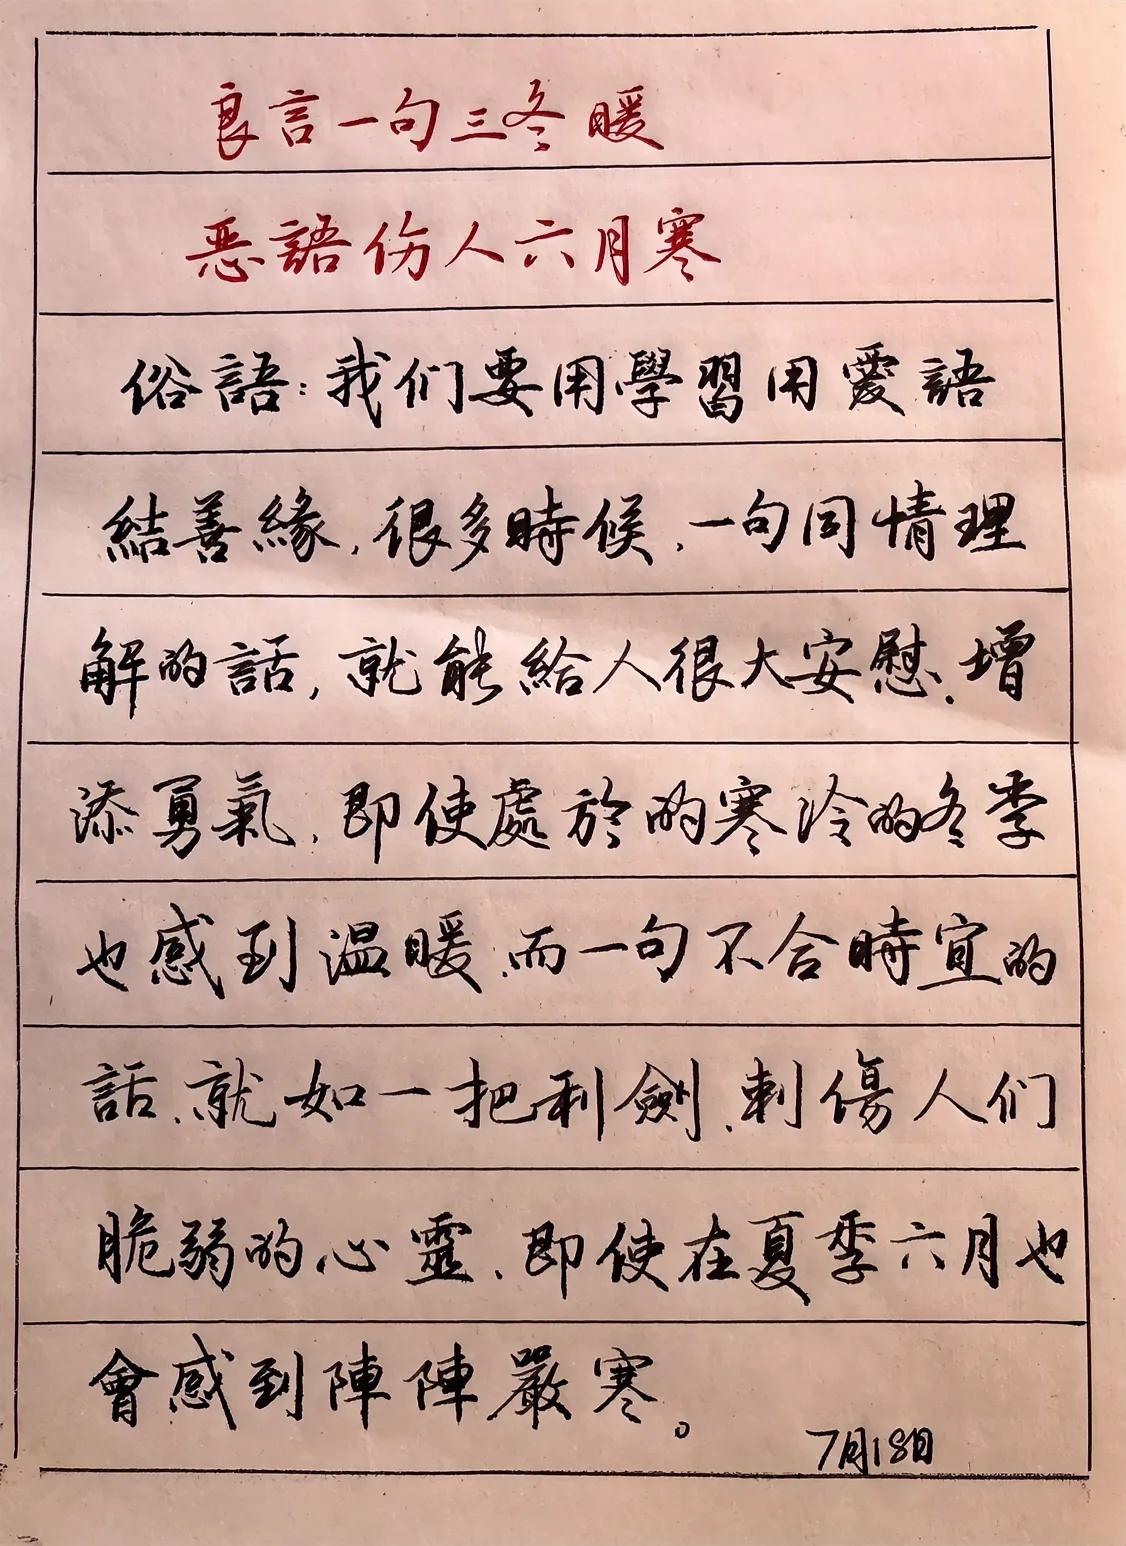 良言一句三冬暖
恶語伤人六月寒
俗語：我们要用學習用愛語
結善緣，很多時候，一句同情理
解的話，就能給人很大安慰，增
添勇氣，即使處於的寒冷的冬季
也感到温暖，而一句不合時宜的
話，就如一把利劍，刺傷人们
脆弱的心靈，即使在夏季六月也
會感到陣陣嚴寒。
7月18日